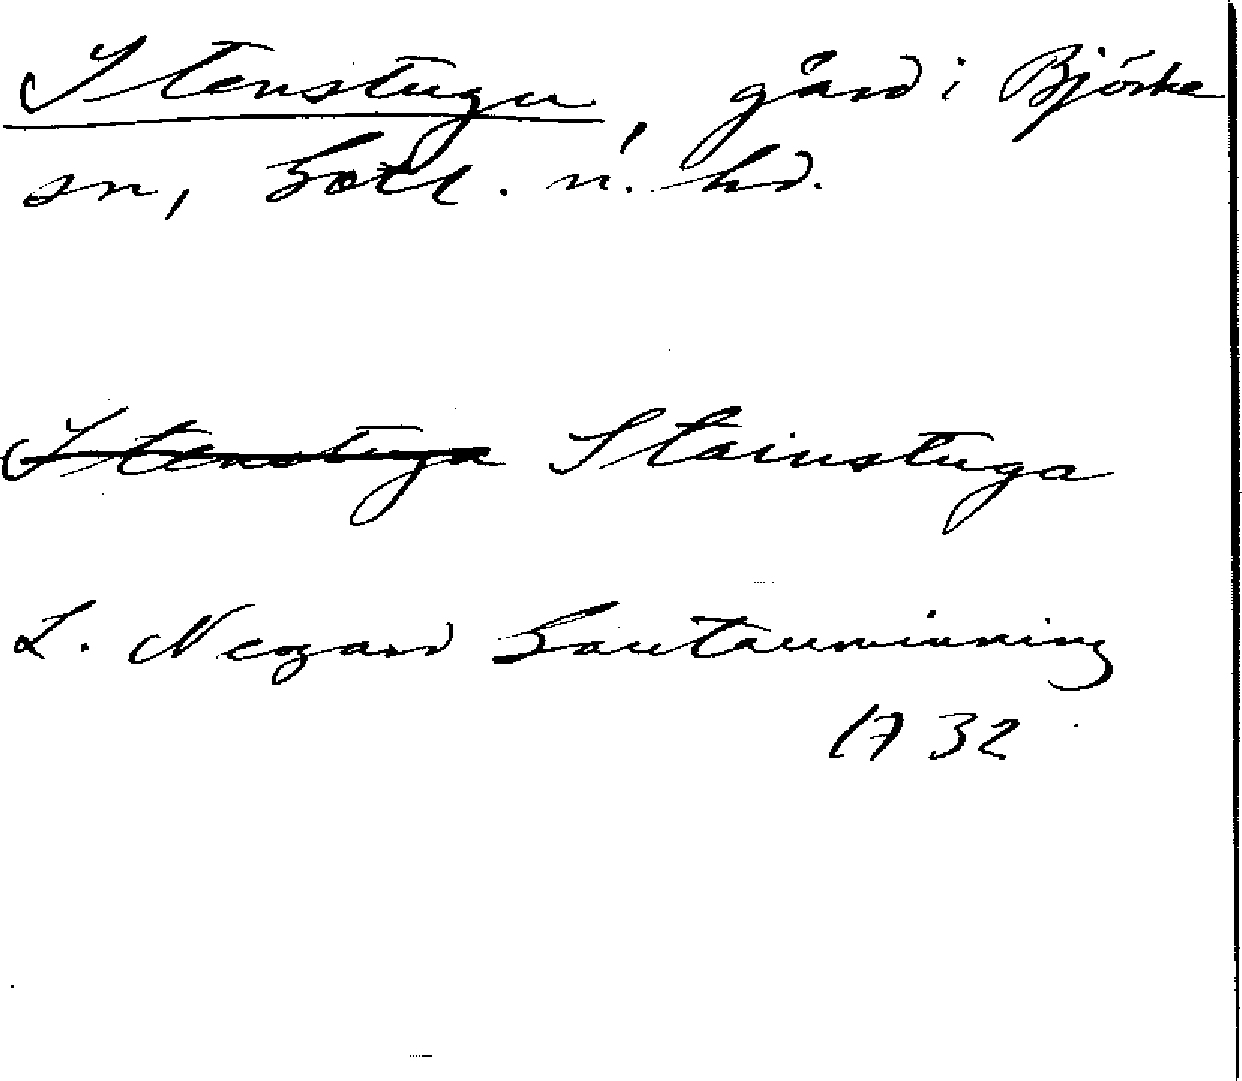 Stenstugu, gård i Björke
sn, Gotl. n. hd.
Stenstuga Stainstuga
L. Neogard Gautauminning
1732